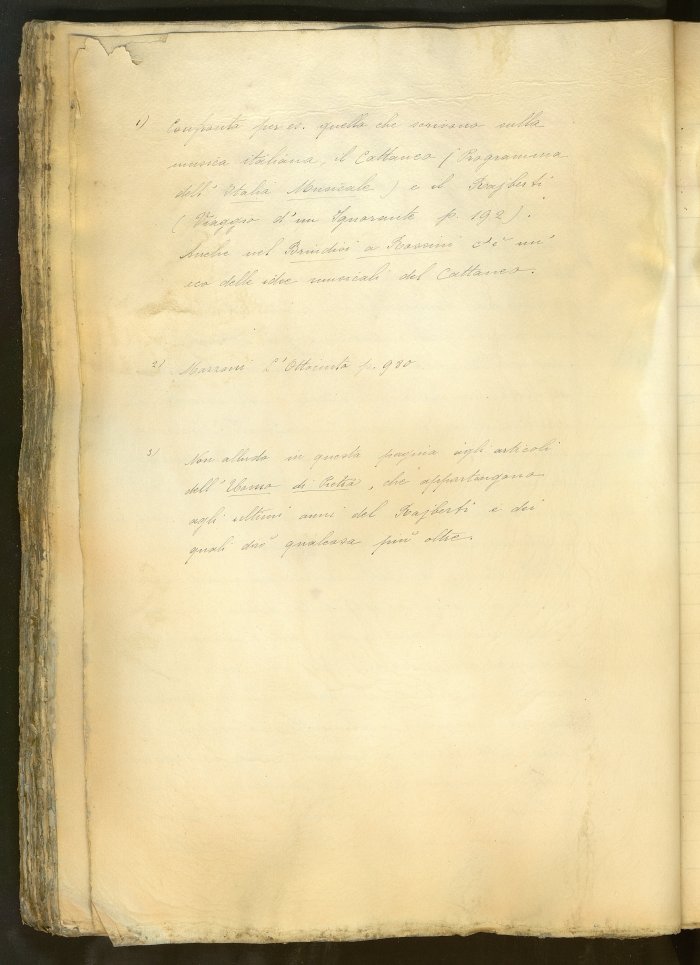 1) Confronta per es. quello che scrivono sulla
musica italiana, il Cattaneo (Programma
dell'Italia Musicale) e il Rajberti
(Viaggio d'un Ignorante p. 192).
Anche nel Brindisi a Rossini c'è un'
eco delle idee musicali del Cattaneo.
2) Mazzoni L'Ottocento p. 980
3) Non alludo in questa pagina agli articoli
dell'Uomo di Pietra, che appartengono
agli ultimi anni del Rajberti e dei
quali dirò qualcosa più oltre.